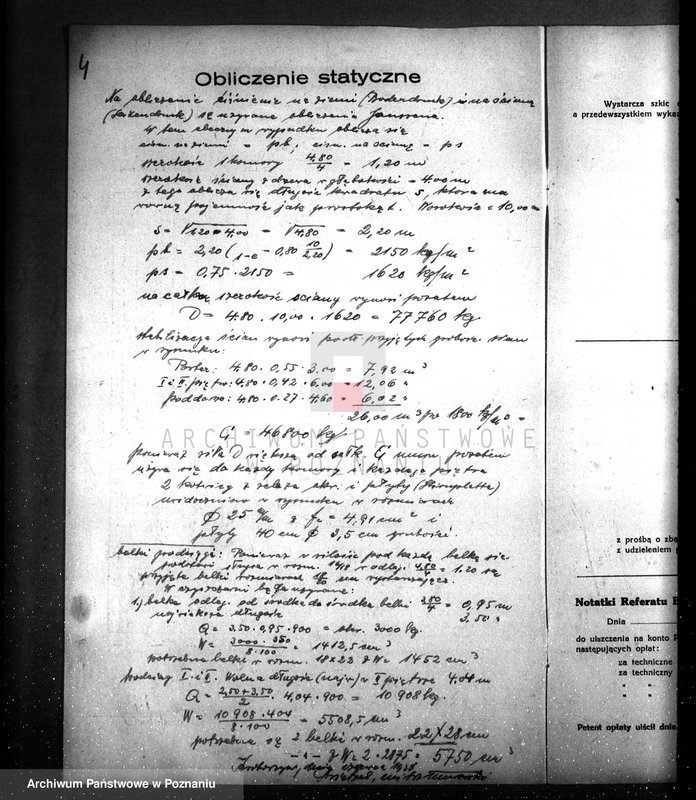 4
Obliczenie statyczne
Na obliczenie ciśnienia na ziemi (Bodendruck) i na ścianę
(Seitendruck) są używane obliczenia Janssena.
W tem obecnym wypadku oblicza się
ciśn. na ziemi = ph, ciśn. na ścianę = ps
szerokość 1 komory 4,80/4 = 1,20 m
szerokość ściany z drzewa = głębokości = 4.00 m
z tego oblicza się długość kwadratu s, która ma
równą pojemność jak prostokąt. = 10,00 m
s = √1.20 · 4,00 = √4,80 = 2,20 m
ph = 2,20 (1-e - 0,80 10/2,20) = 2150 kg/m²
ps = 0,75 · 2150 = 1620 kg/m²
na całką szerokość ściany wynosi pozatem
D = 4.80 . 10,00 . 1620 = 77760 kg
stabilizacja ścian wynosi podł. przyjętych grubości ścian
w rysunku:
Parter: 4.80 · 0,55 · 3.00 = 7,92 m³
I i II piętro: 4.80 · 0,42 · 6,00 = 12,06 "
poddasze: 4.80 · 0.27 · 4.60 = 6,02 "
26,00 m³ po 1800 kg/m³ =
G = 46800 kg.
ponieważ siła D większa od G muru pozatem
używa się do każdej komory i każdego piętra
2 kotwicy z żelaza okr. i płyty
uwidocznione w rysunku w rozmiarach
Ø 25 m/m z fe = 4,91 cm² i
płyty 40 cm Ø 3,5 cm grubości.
belki podciągi: Ponieważ w silosie pod każdą belką się
podstawi słupa w rozm. 14/18 w odleg. 4.80/4 = 1.20 są
przyjęte belki rozmiarach cm wystarczające
W wyczyszczarni będą używane:
1.) belka odleg. od środka do środka belki 3.80/4 = 0,95 m
największa długość 3,50 "
Q = 3.50 · 0,95 · 900 = okr. 3000 kg.
W = 3000 · 350 / 8 · 100 = 1412,5 cm³
potrzebna belki w rozm. 18 x 22 z W = 1452 cm³
Podciąg I. i II. Wolna długość (najw.) w II piętrze 4.04 m
Q = 2,50 + 3,50 / 2 . 4,04 · 900 = 10908 kg.
W = 10908 · 404 / 8 · 100 = 5508,5 cm³
potrzebne są 2 belki w rozm. 22 X 28 cm
-"- z W = 2 · 2875 = 5750 cm³
ARCHIWUM PAŃSTWOWE
W POZNANIU
Wystarcza szkic
a przedewszystkiem wyka
z prośbą o zba
z udzieleniem
Notatki Referatu B
Dnia
do uiszczenia na konto
następujących opłat:
za techniczne
za techniczny
" "
" "
Petent opłaty uiścił dnia
Archiwum Państwowe w Poznaniu